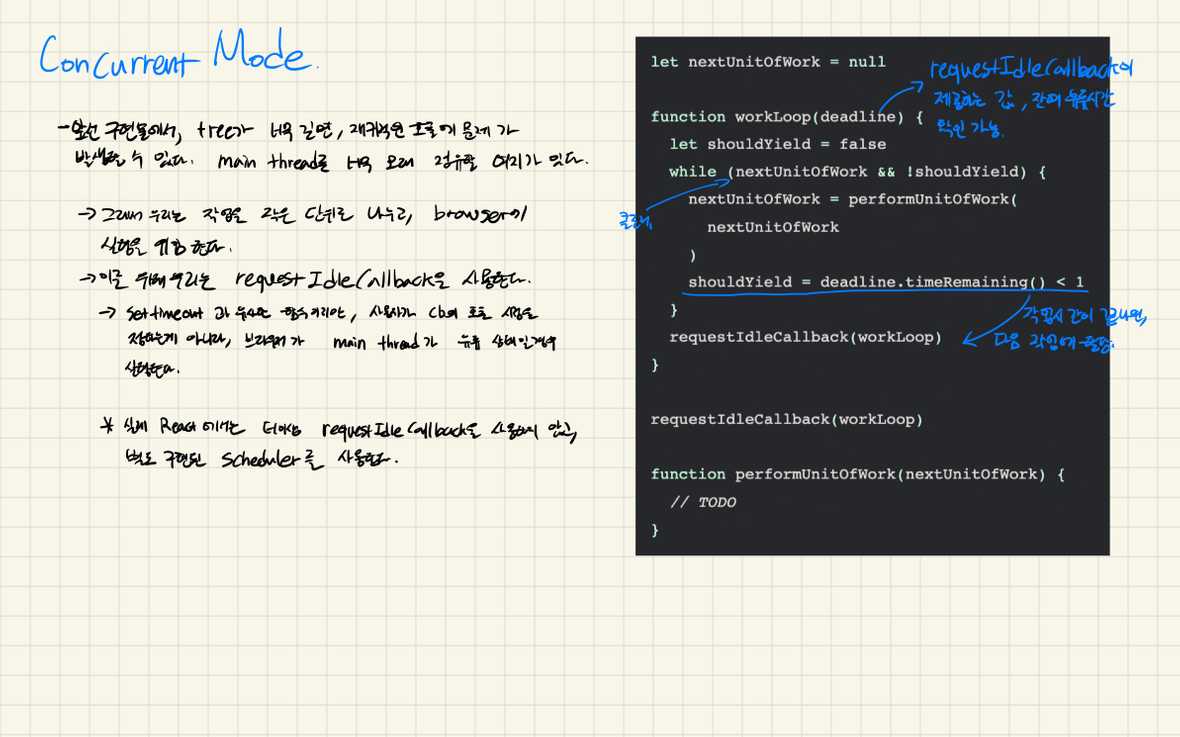 Concurrent Mode.
- 앞선 구현물에서, tree가 너무 길면, 재귀적인 호출에 문제가
발생할 수 있다. main thread를 너무 오래 점유할 여지가 있다.
→ 그래서 우리는 작업을 작은 단위로 나누고, browser가
실행을 한다.
→ 이를 위해 우리는 requestIdleCallback을 사용한다.
→ settimeout 과 함수이지만, 사용자가 cb의 호출 시점을
정하는게 아니라, 브라우저가 main thread가 유휴 상태일경우
실행한다.
* 실제 React 에서는 더이상 requestIdleCallback을 사용하지 않고,
별도 구현된 Scheduler를 사용한다.
let nextUnitOfWork = null
requestIdleCallback이
제공하는 값, 잔여 유휴시간
확인 가능.
function workLoop(deadline) {
let shouldYield = false
while (nextUnitOfWork && !shouldYield) {
nextUnitOfWork = performUnitOfWork(
nextUnitOfWork
)
shouldYield = deadline.timeRemaining() < 1
}
작업시간이 끝나면,
다음 작업에 할당.
requestIdleCallback(workLoop)
}
requestIdleCallback(workLoop)
function performUnitOfWork(nextUnitOfWork) {
// TODO
}